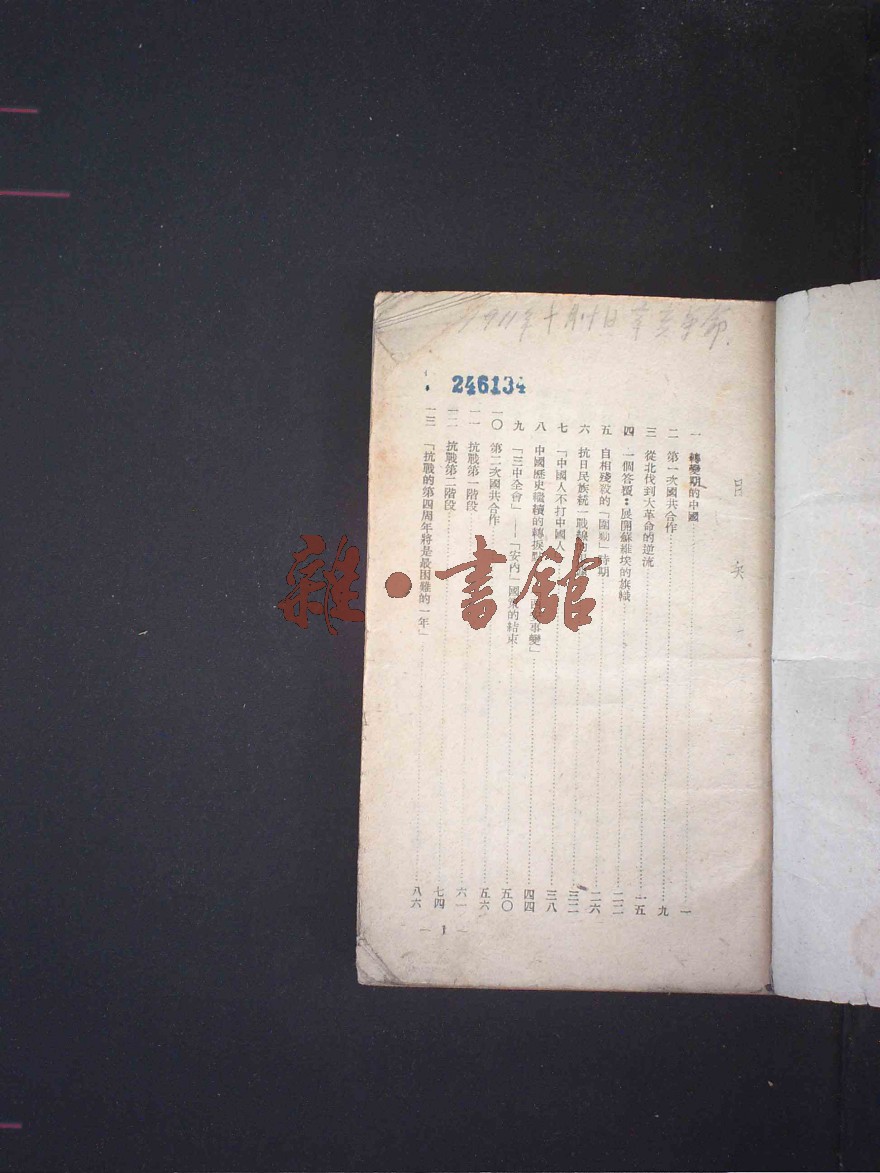 1911年十月十日辛亥革命
246134
目次
一　轉變期的中國……一
二　第一次國共合作……九
三　從北伐到大革命的逆流……一五
四　一個答覆：展開蘇維埃的旗幟……二二
五　自相殘殺的「圍剿」時期……二六
六　抗日民族統一戰線……三二
七　「中國人不打中國人……三八
八　中國歷史繼續的轉捩點……事變」……四四
九　「三中全會」——「安內」國策的結束……五〇
一〇　第二次國共合作……五六
一一　抗戰第一階段……六一
一二　抗戰第二階段……七四
一三　「抗戰的第四周年將是最困難的一年」……八六
— 1 —
雜·書館